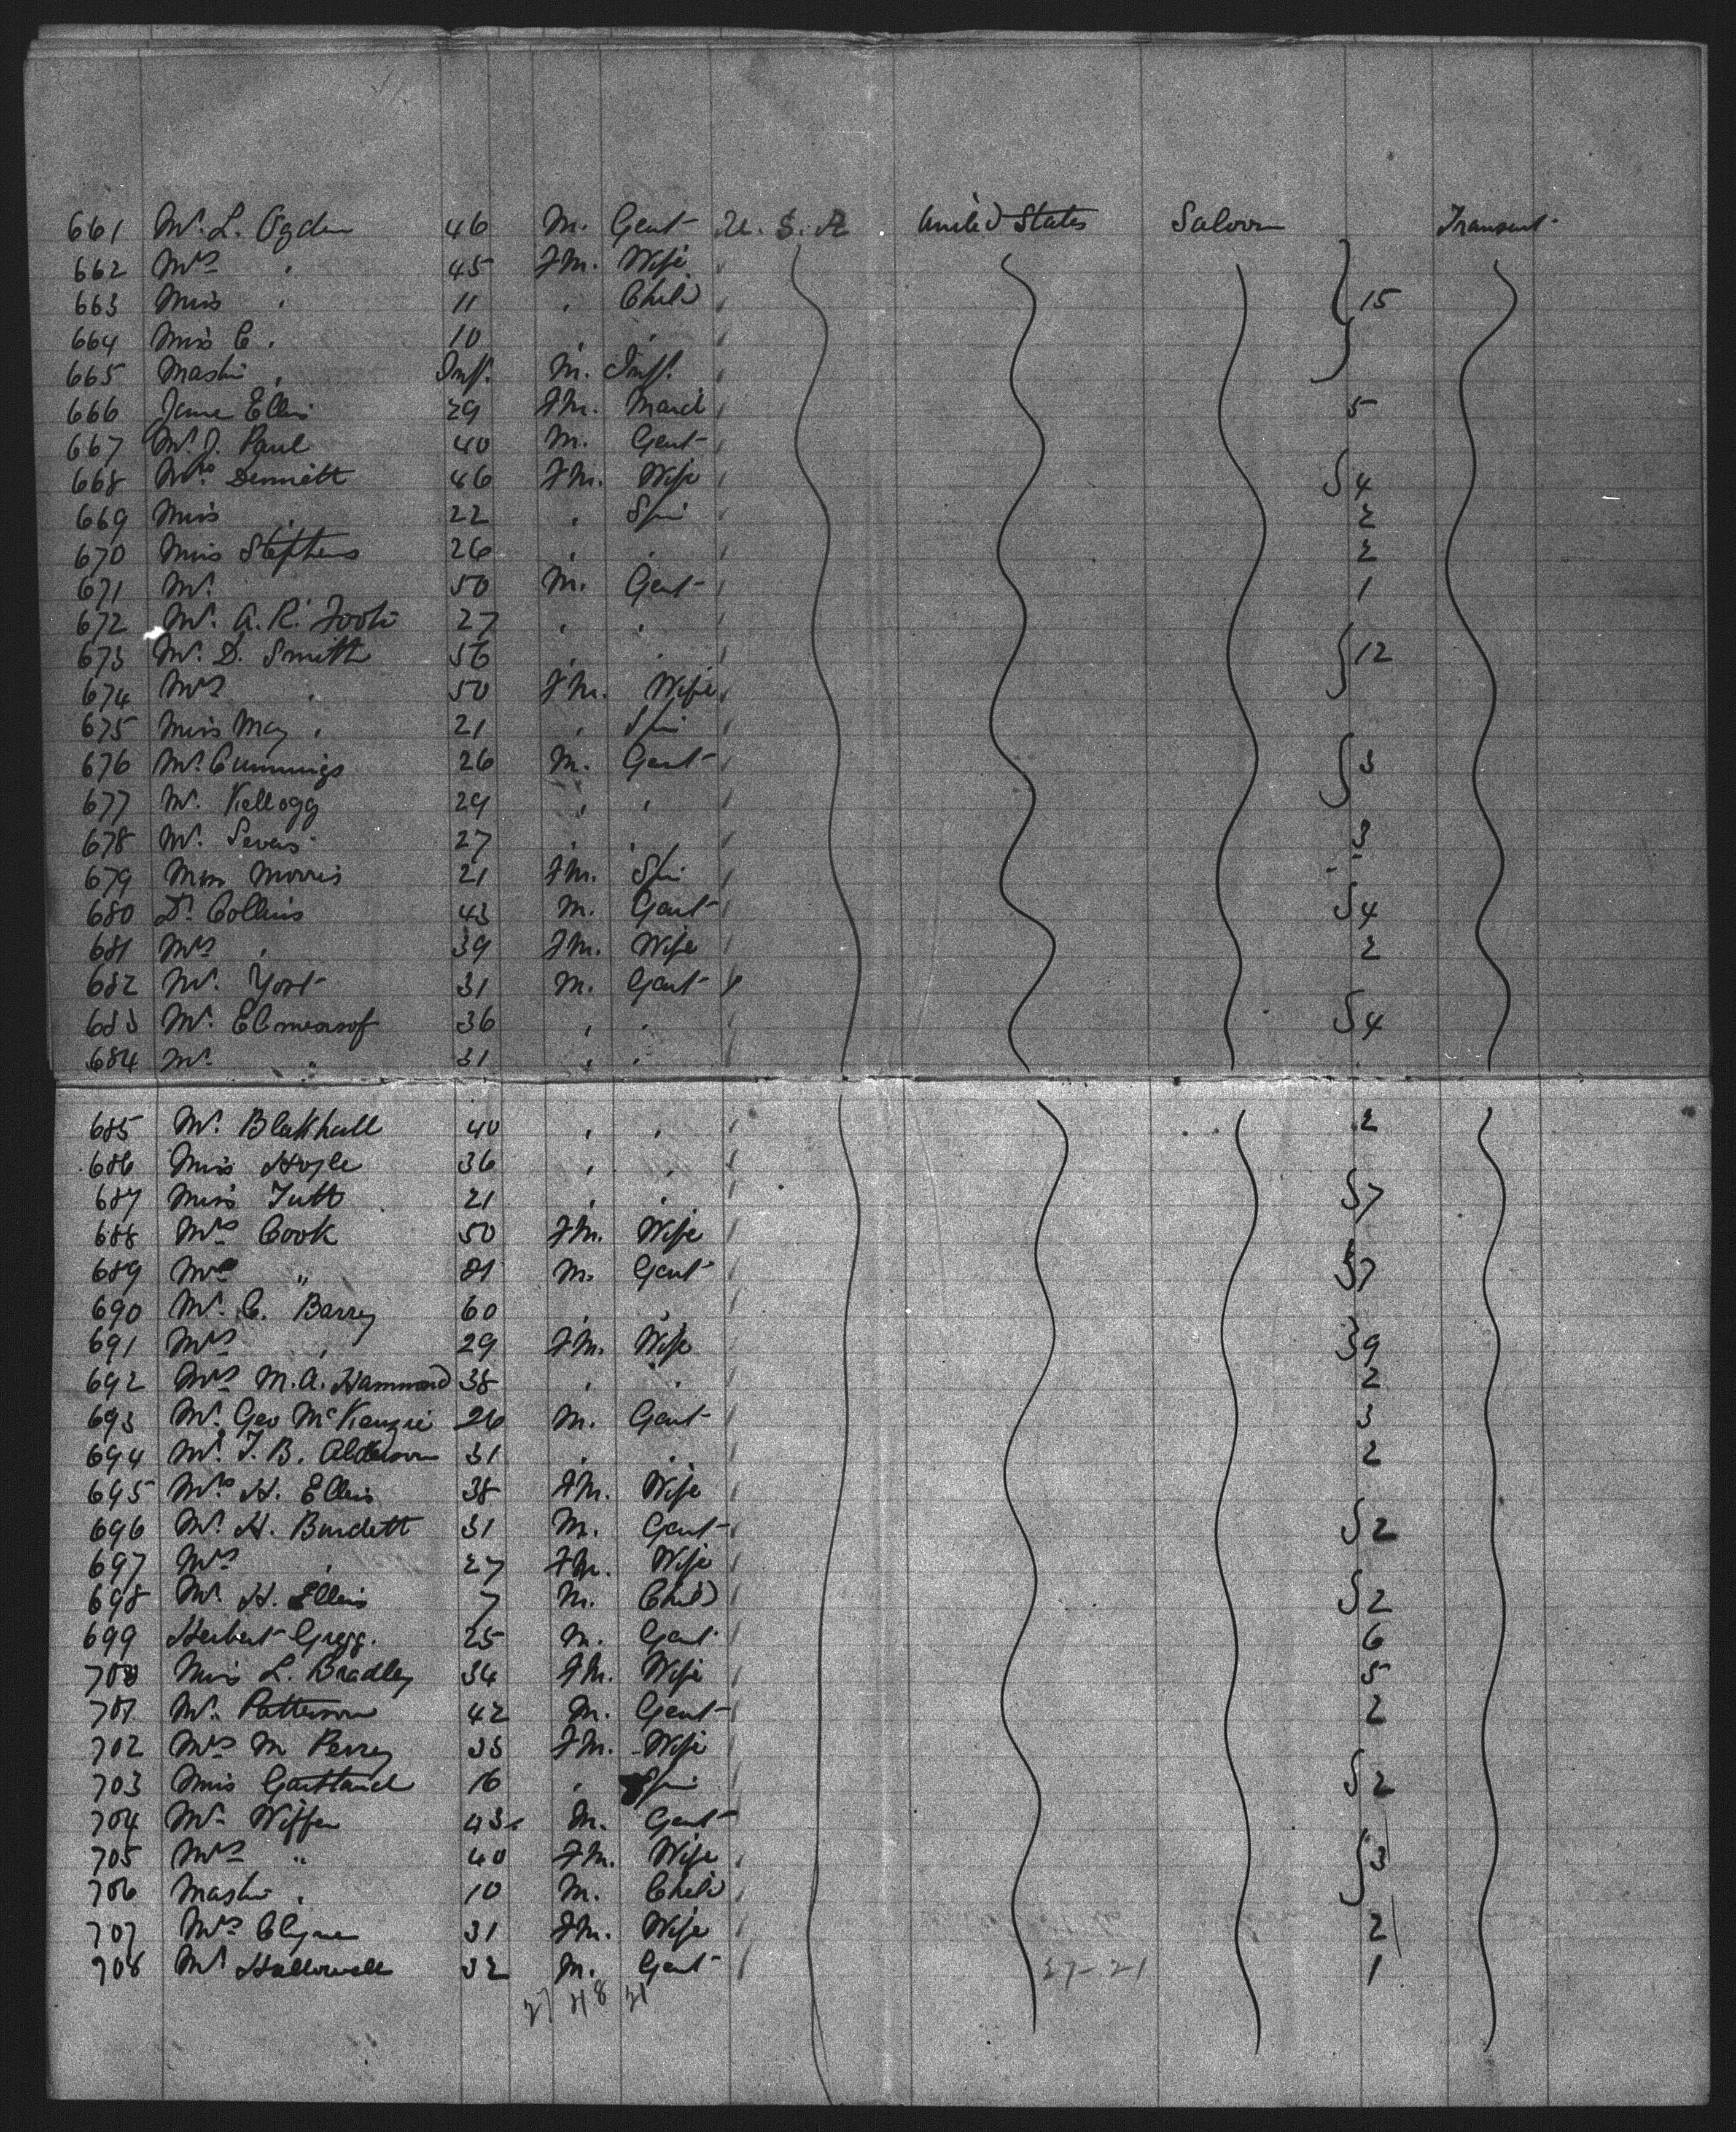 661 Mr. L. Ogden 46 M. Gent U. S. A United States Saloon Transient
662 Mrs " 45 Fm. Wife
663 Miss " 11 " Child 15
664 Miss C. " 10 " "
665 Master " Inft. M. Inft.
666 Jane Ellis 29 Fm. Maid 5
667 Mr. J. Paul 40 M. Gent
668 Mrs Dennett 46 Fm. Wife 4
669 Miss " 22 " Spin 2
670 Miss Stephens 26 " " 2
671 Mr. " 50 M. Gent 1
672 Mr. A. R. Foote 27 " "
673 Mr. D. Smith 56 " " 12
674 Mrs " 50 Fm. Wife
675 Miss May " 21 " Spin
676 Mr. Cummings 26 M. Gent 3
677 Mr. Kellogg 29 " "
678 Mr. 27 " " 3
679 Miss Morris 21 Fm. Spin
680 Dr. Collins 43 M. Gent 4
681 Mrs " 39 Fm. Wife 2
682 Mr. Yost 31 M. Gent
683 Mr. 36 " " 4
684 Mr. " 31 " "
685 Mr. Blakhall 40 " " 2
686 Miss Hoyle 36 " "
687 Miss Tutt 21 " " 7
688 Mrs Cook 50 Fm. Wife
689 Mr " 81 M. Gent 7
690 Mr. C. Barrey 60 " "
691 Mrs " 29 Fm. Wife 9
692 Mrs M. A. Hammond 38 " " 2
693 Mr. Geo McKenzie 26 M. Gent 3
694 Mr. T. B. Alderson 31 " " 2
695 Mrs H. Ellis 38 Fm. Wife
696 Mr. H. Burdett 31 M. Gent 2
697 Mrs " 27 Fm. Wife
698 Mr. H. Ellis 7 M. Child 2
699 Herbert Gregg. 25 M. Gent 6
700 Miss L. Bradley 34 Fm. Wife 5
701 Mr. Patterson 42 M. Gent 2
702 Mrs M Perrey 33 Fm. Wife
703 Miss Gartland 16 " Spin 2
704 Mr. Wiffen 43 M. Gent
705 Mrs " 40 Fm. Wife 3
706 Master " 10 M. Child
707 Mrs Clyne 31 Fm. Wife 2
708 Mr Hallowell 32 M. Gent 27-21 1
27 48 21